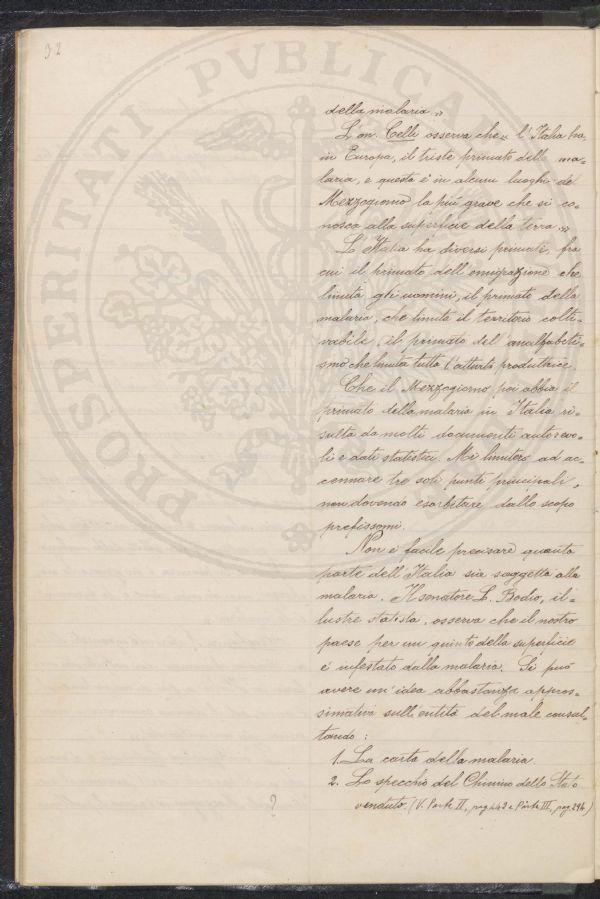 32
PROSPERITATI PVBLICAE
della malaria »
L'on. Celli osserva che « l'Italia ha,
in Europa, il triste primato della ma=
laria, e questa è in alcuni luoghi del
Mezzogiorno la più grave che si co=
nosca alla superficie della terra »
L'Italia ha diversi primati, fra
cui il primato dell'emigrazione che
limita gli uomini, il primato della
malaria, che limita il territorio colti=
vabile, il primato dell'analfabeti=
smo che limita tutta l'attività produttrice.
Che il Mezzogiorno poi abbia il
primato della malaria in Italia ri=
sulta da molti documenti autorevo=
li e dati statistici. Mi limiterò ad ac=
cennare tre soli punti principali,
non dovendo esorbitare dallo scopo
prefissomi.
Non è facile precisare quanta
parte dell'Italia sia soggetta alla
malaria. Il senatore L. Bodio, il=
lustre statista, osserva che il nostro
paese per un quinto della superficie
è infestato dalla malaria. Si può
avere un'idea abbastanza appros=
simativa sull'entità del male consul=
tando:
1. La carta della malaria.
2. Lo specchio del Chinino dello Stato
venduto. (V. Parte II, pag. 443 e Parte III, pag. 294)
?